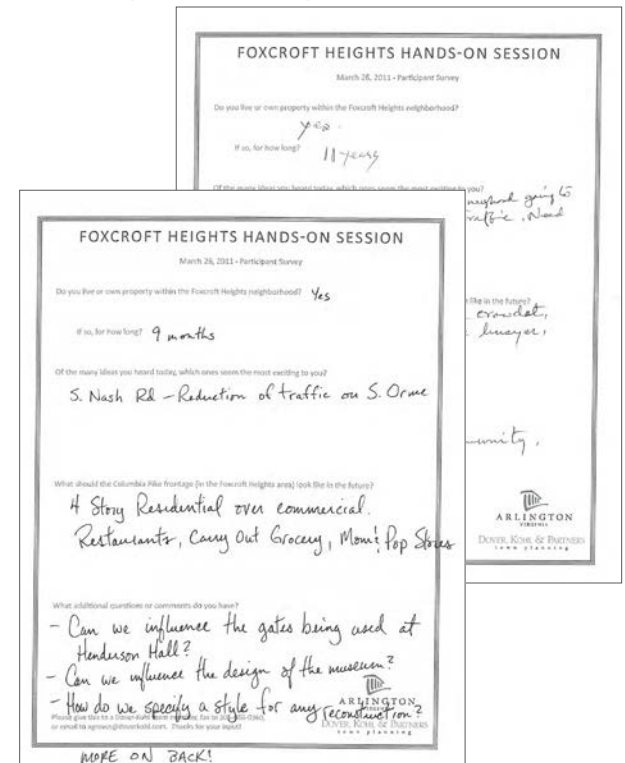 FOXCROFT HEIGHTS HANDS-ON SESSION
March 28, 2011 • Participant Survey
Do you live or own property within the Foxcroft Heights neighborhood?
yes.
If so, for how long? 11 years
Of the many ideas you heard today, which ones seem the most exciting to you?
going to
traffic, Need
like in the future?
ARLINGTON
VIRGINIA
DOVER, KOHL & PARTNERS
town planning
FOXCROFT HEIGHTS HANDS-ON SESSION
March 28, 2011 • Participant Survey
Do you live or own property within the Foxcroft Heights neighborhood? Yes
If so, for how long? 9 months
Of the many ideas you heard today, which ones seem the most exciting to you?
S. Nash Rd - Reduction of traffic on S. Orme
What should the Columbia Pike frontage (in the Foxcroft Heights area) look like in the future?
4 Story Residential over commercial.
Restaurants, Carry Out Grocery, Mom & Pop Stores
What additional questions or comments do you have?
- Can we influence the gates being used at
Henderson Hall?
- Can we influence the design of the museum?
- How do we specify a style for any reconstruction?
ARLINGTON
VIRGINIA
Please give this to a Dover-Kohl team
Thanks for your input!
DOVER, KOHL & PARTNERS
town planning
MORE ON BACK!